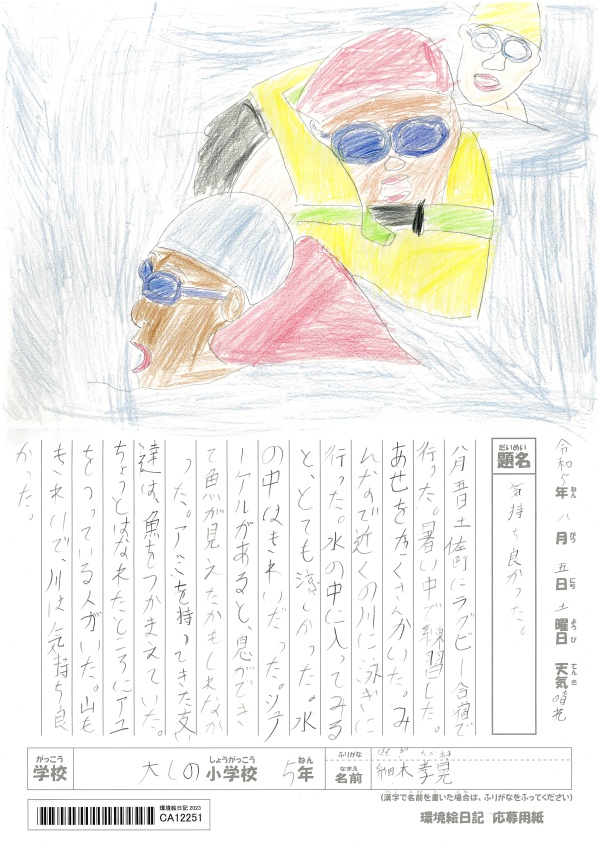 令和5年八月五日土曜日 天気 晴れ
ねん がつ にち ようび てんき
だいめい
題名
気持ち良かった。
八月五日土佐町にラグビー合宿で
行った。暑い中で練習した。
あせをたくさんかいた。み
んなで近くの川に泳ぎに
行った。水の中に入ってみる
と、とても涼しかった。水
の中はきれいだった。シュノ
ーケルがあると、息ができ
て魚が見えたかもしれなか
った。アミを持ってきた友
達は、魚をつかまえていた。
ちょっとはなれたところにアユ
をつっている人がいた。山も
きれいで、川は気持ち良
かった。
がっこう
学校
大しの
しょうがっこう
小学校
5
ねん
年
ふりがな
なまえ
名前
細木
(漢字で名前を書いた場合は、ふりがなをふってください)
環境絵日記 2023
CA12251
環境絵日記 応募用紙